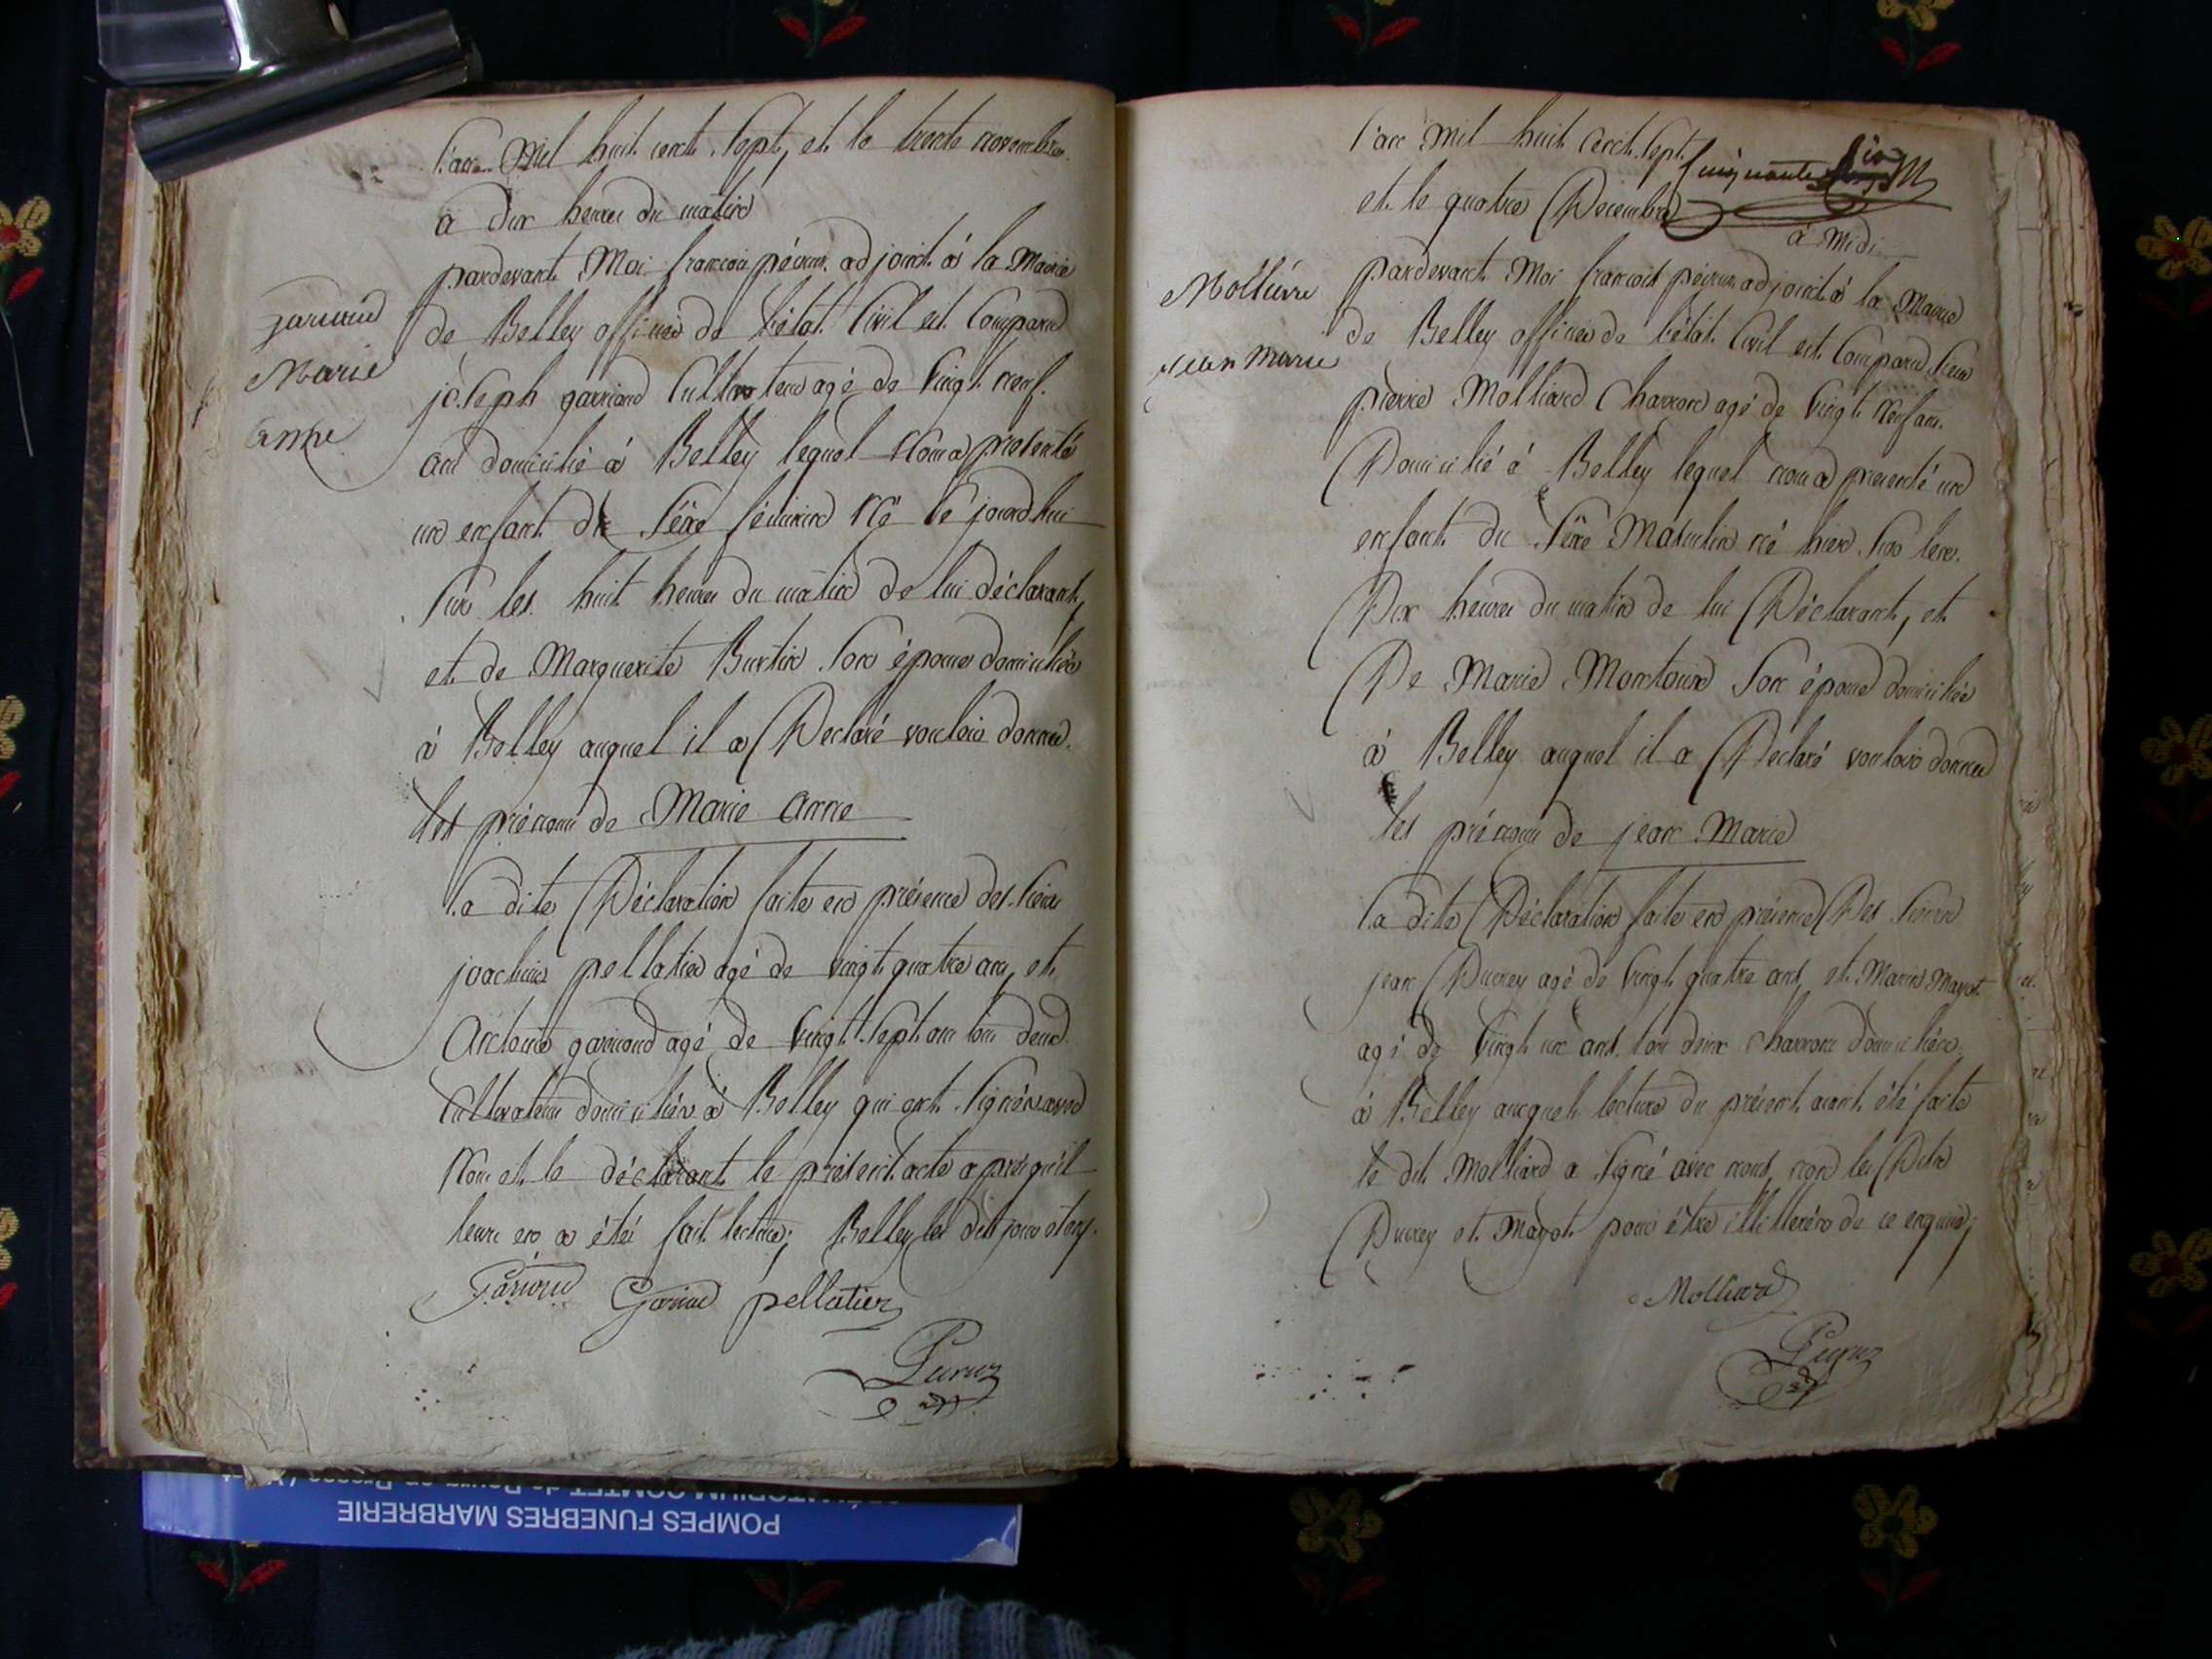 l'an Mil huit cent Sept, et le trente novembre
a dix heures du matin
pardevant Moi françois péeruz adjoint à la Mairie
de Belley officier de l'état Civil est Comparu
joseph garriand Cultivateur agé de vingt neuf
ans domicilié à Belley lequel nous a présenté
un enfant du Séxe féminin né ce jourdhui
Sur les huit heures du matin de lui déclarant,
et de Marguerite Burtin Son épouse domiciliée
à Belley auquel il a Déclaré vouloir donner
les prénoms de Marie anne
la dite Déclaration faite en présence des Sieurs
joachim pellatier agé de vingt quatre ans, et
Antoine garriand agé de vingt Sept ans tous deux
Cultivateurs domiciliés à Belley qui ont Signés avec
Nous et le déclarant le présent acte après qu'il
leur en a été fait lecture; Belley les dits jour et an.
Garriand pellatier
Marie
anne
l'an Mil huit Cent Sept
Cinquante Six
et le quatre Decembre
à Midi
pardevant Moi françois péeruz adjoint à la Mairie
de Belley officier de l'état Civil est Comparu Sieur
pierre Molliard Charron agé de vingt neuf ans
Domicilié à Belley lequel nous a presenté un
enfant du Séxe Masculin né hier Sur les
Dix heures du matin de lui Déclarant, et
De Marie Montoux Son épouse domiciliée
à Belley auquel il a Déclaré vouloir donner
les prénoms de jean Marie
la dite Déclaration faite en présence Des Sieurs
jean Ducrey agé de vingt quatre ans, et Marin Mayot
agé de vingt un ans tous deux Charrons domiciliés
à Belley auxquels lecture du présent aiant été faite
le dit Molliard a Signé avec nous, non les Dits
Ducrey et Mayot pour être illitterés de ce enquis;
Molliard
jean Marie
POMPES FUNEBRES MARBRERIE